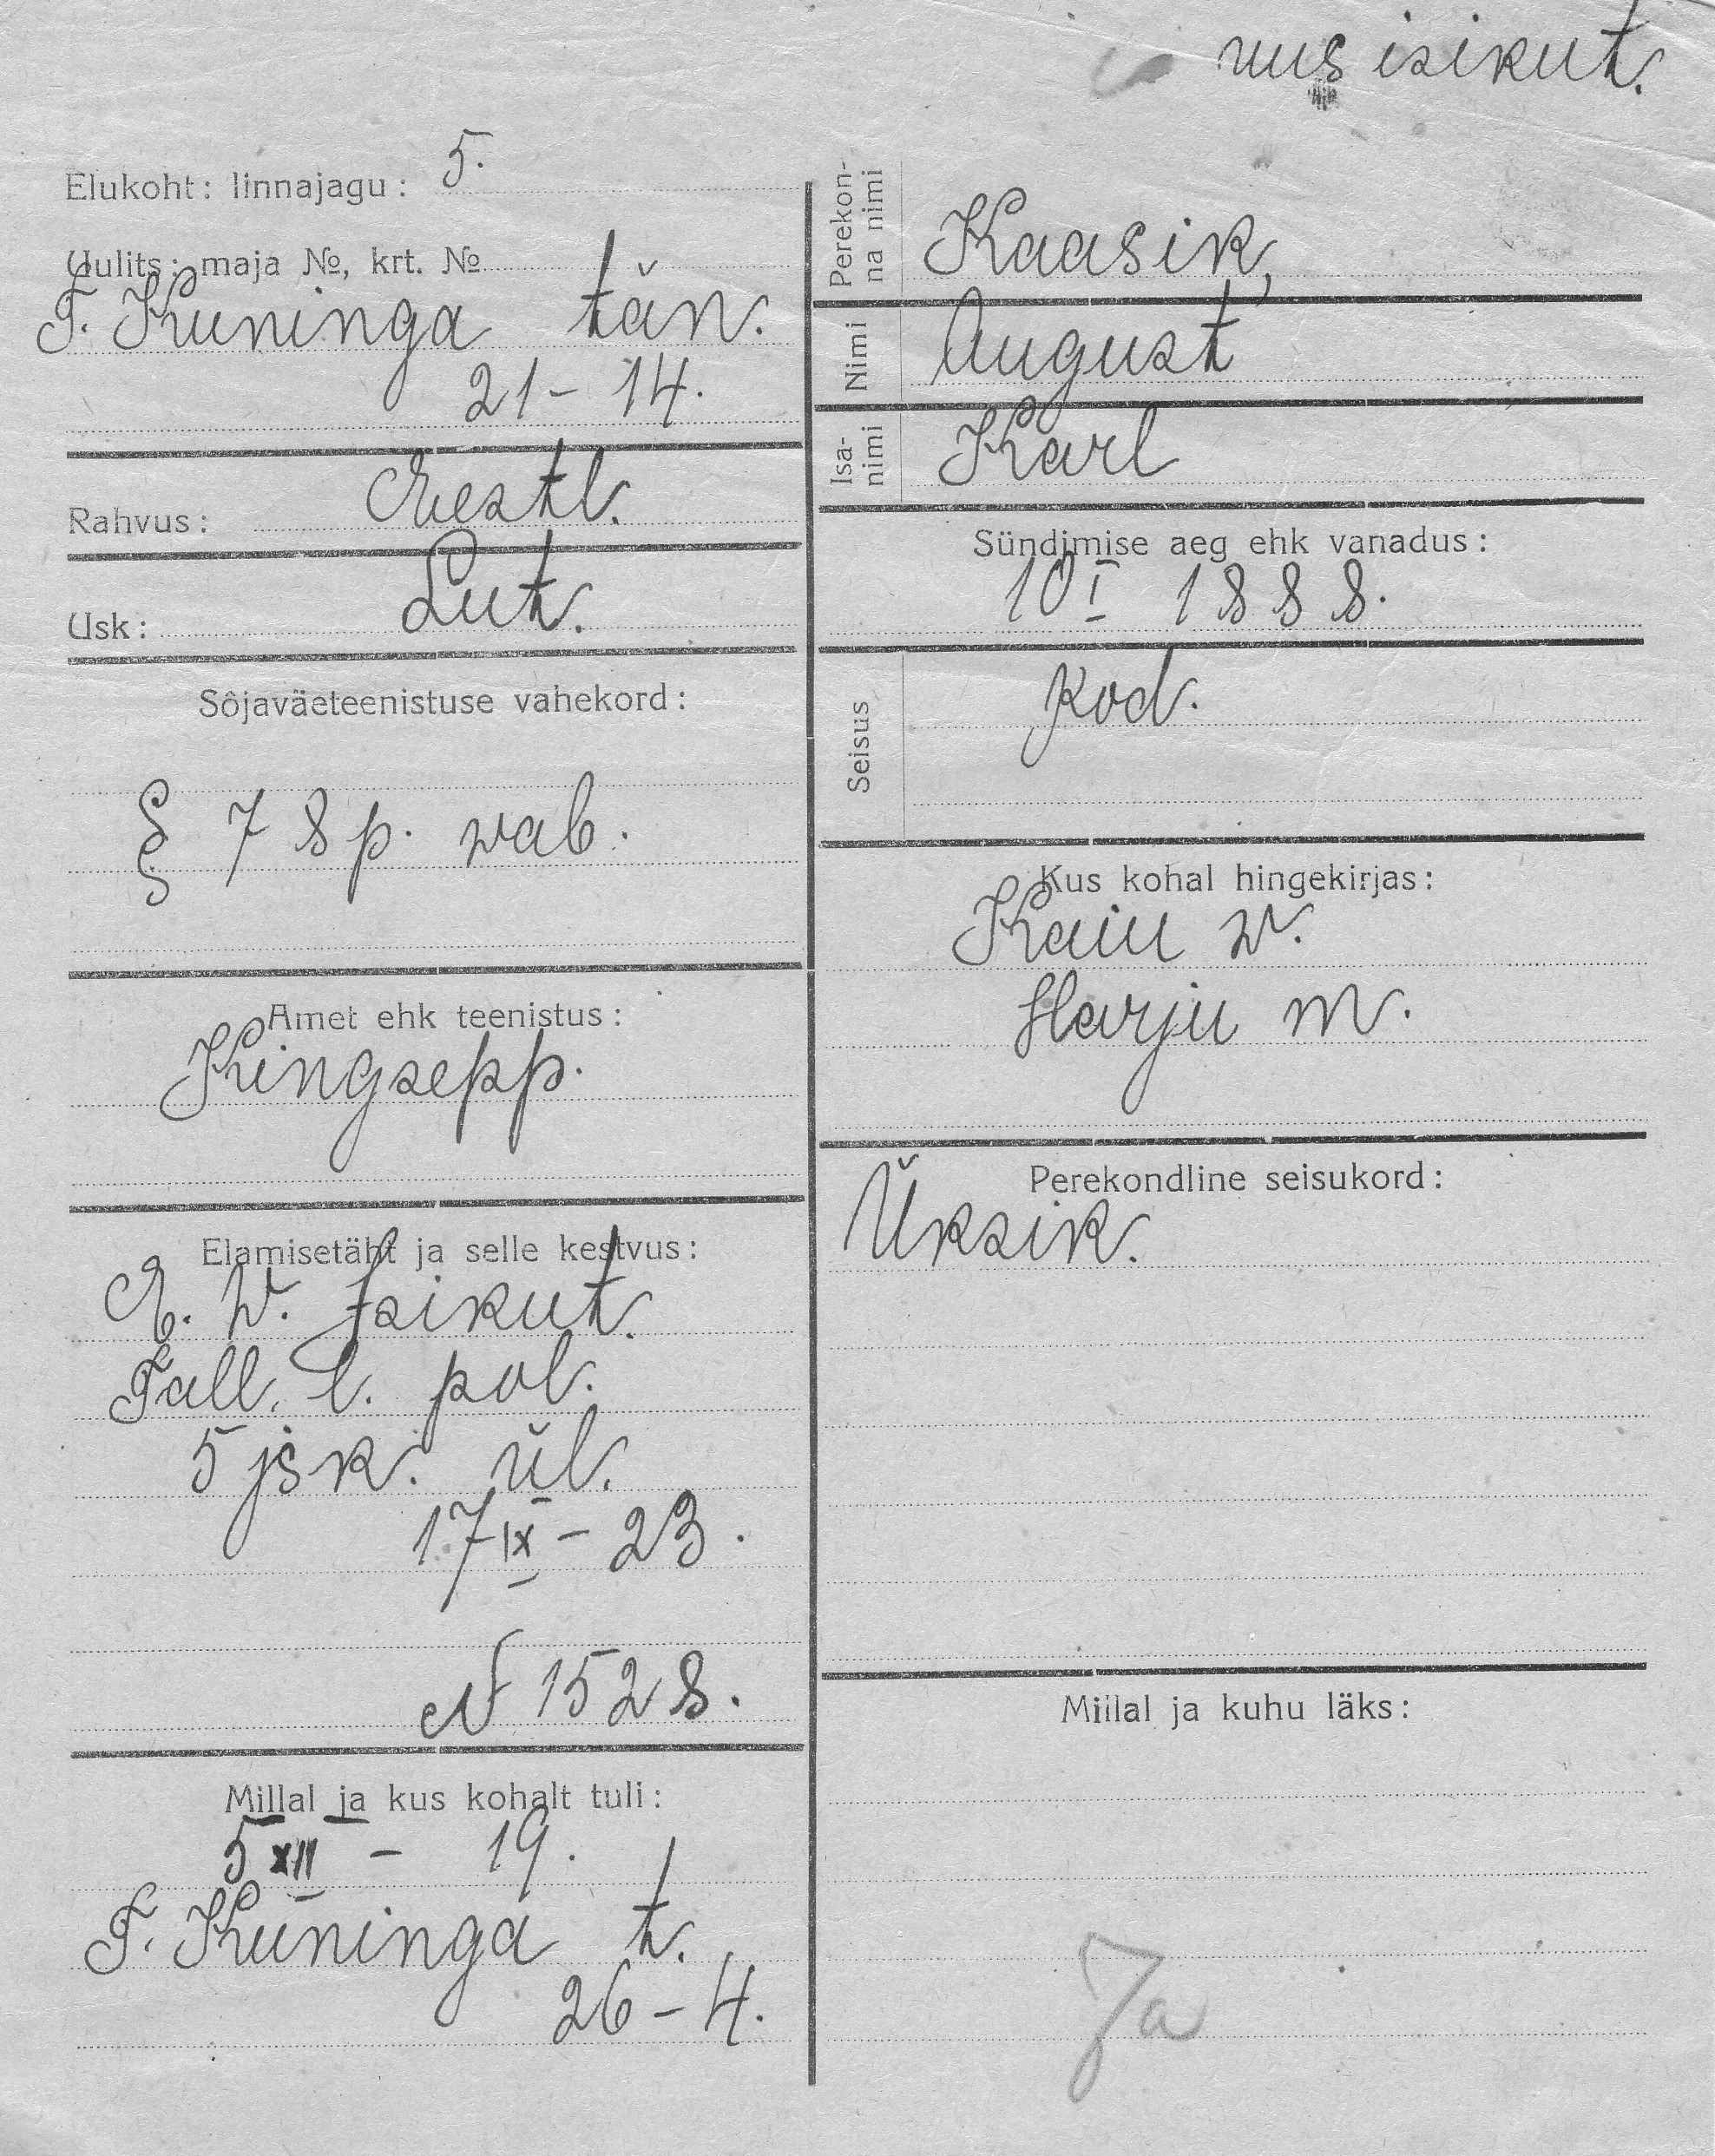 uus isikut.
Elukoht: linnajagu: 5.
Uulits: maja №, krt. №
T. Kuninga tän.
21 - 14.
Rahvus: Eestl.
Usk: Lut.
Sõjaväeteenistuse vahekord:
§ 7 8 p. wab.
Amet ehk teenistus:
Kingsepp.
Elamisetäht ja selle kestvus:
E. W. Isikut.
Tall. l. pol.
5 jsk. ül.
17 IX - 23.
N 1528.
Millal ja kus kohalt tuli:
5 XII - 19.
T. Kuninga t.
26 - 4.
Perekonna nimi Kaasik,
Nimi August
Isanimi Karl
Sündimise aeg ehk vanadus:
10 I 1888.
Seisus kod.
Kus kohal hingekirjas:
Kaiu w.
Harju m.
Perekondline seisukord:
Üksik.
Millal ja kuhu läks:
Ja